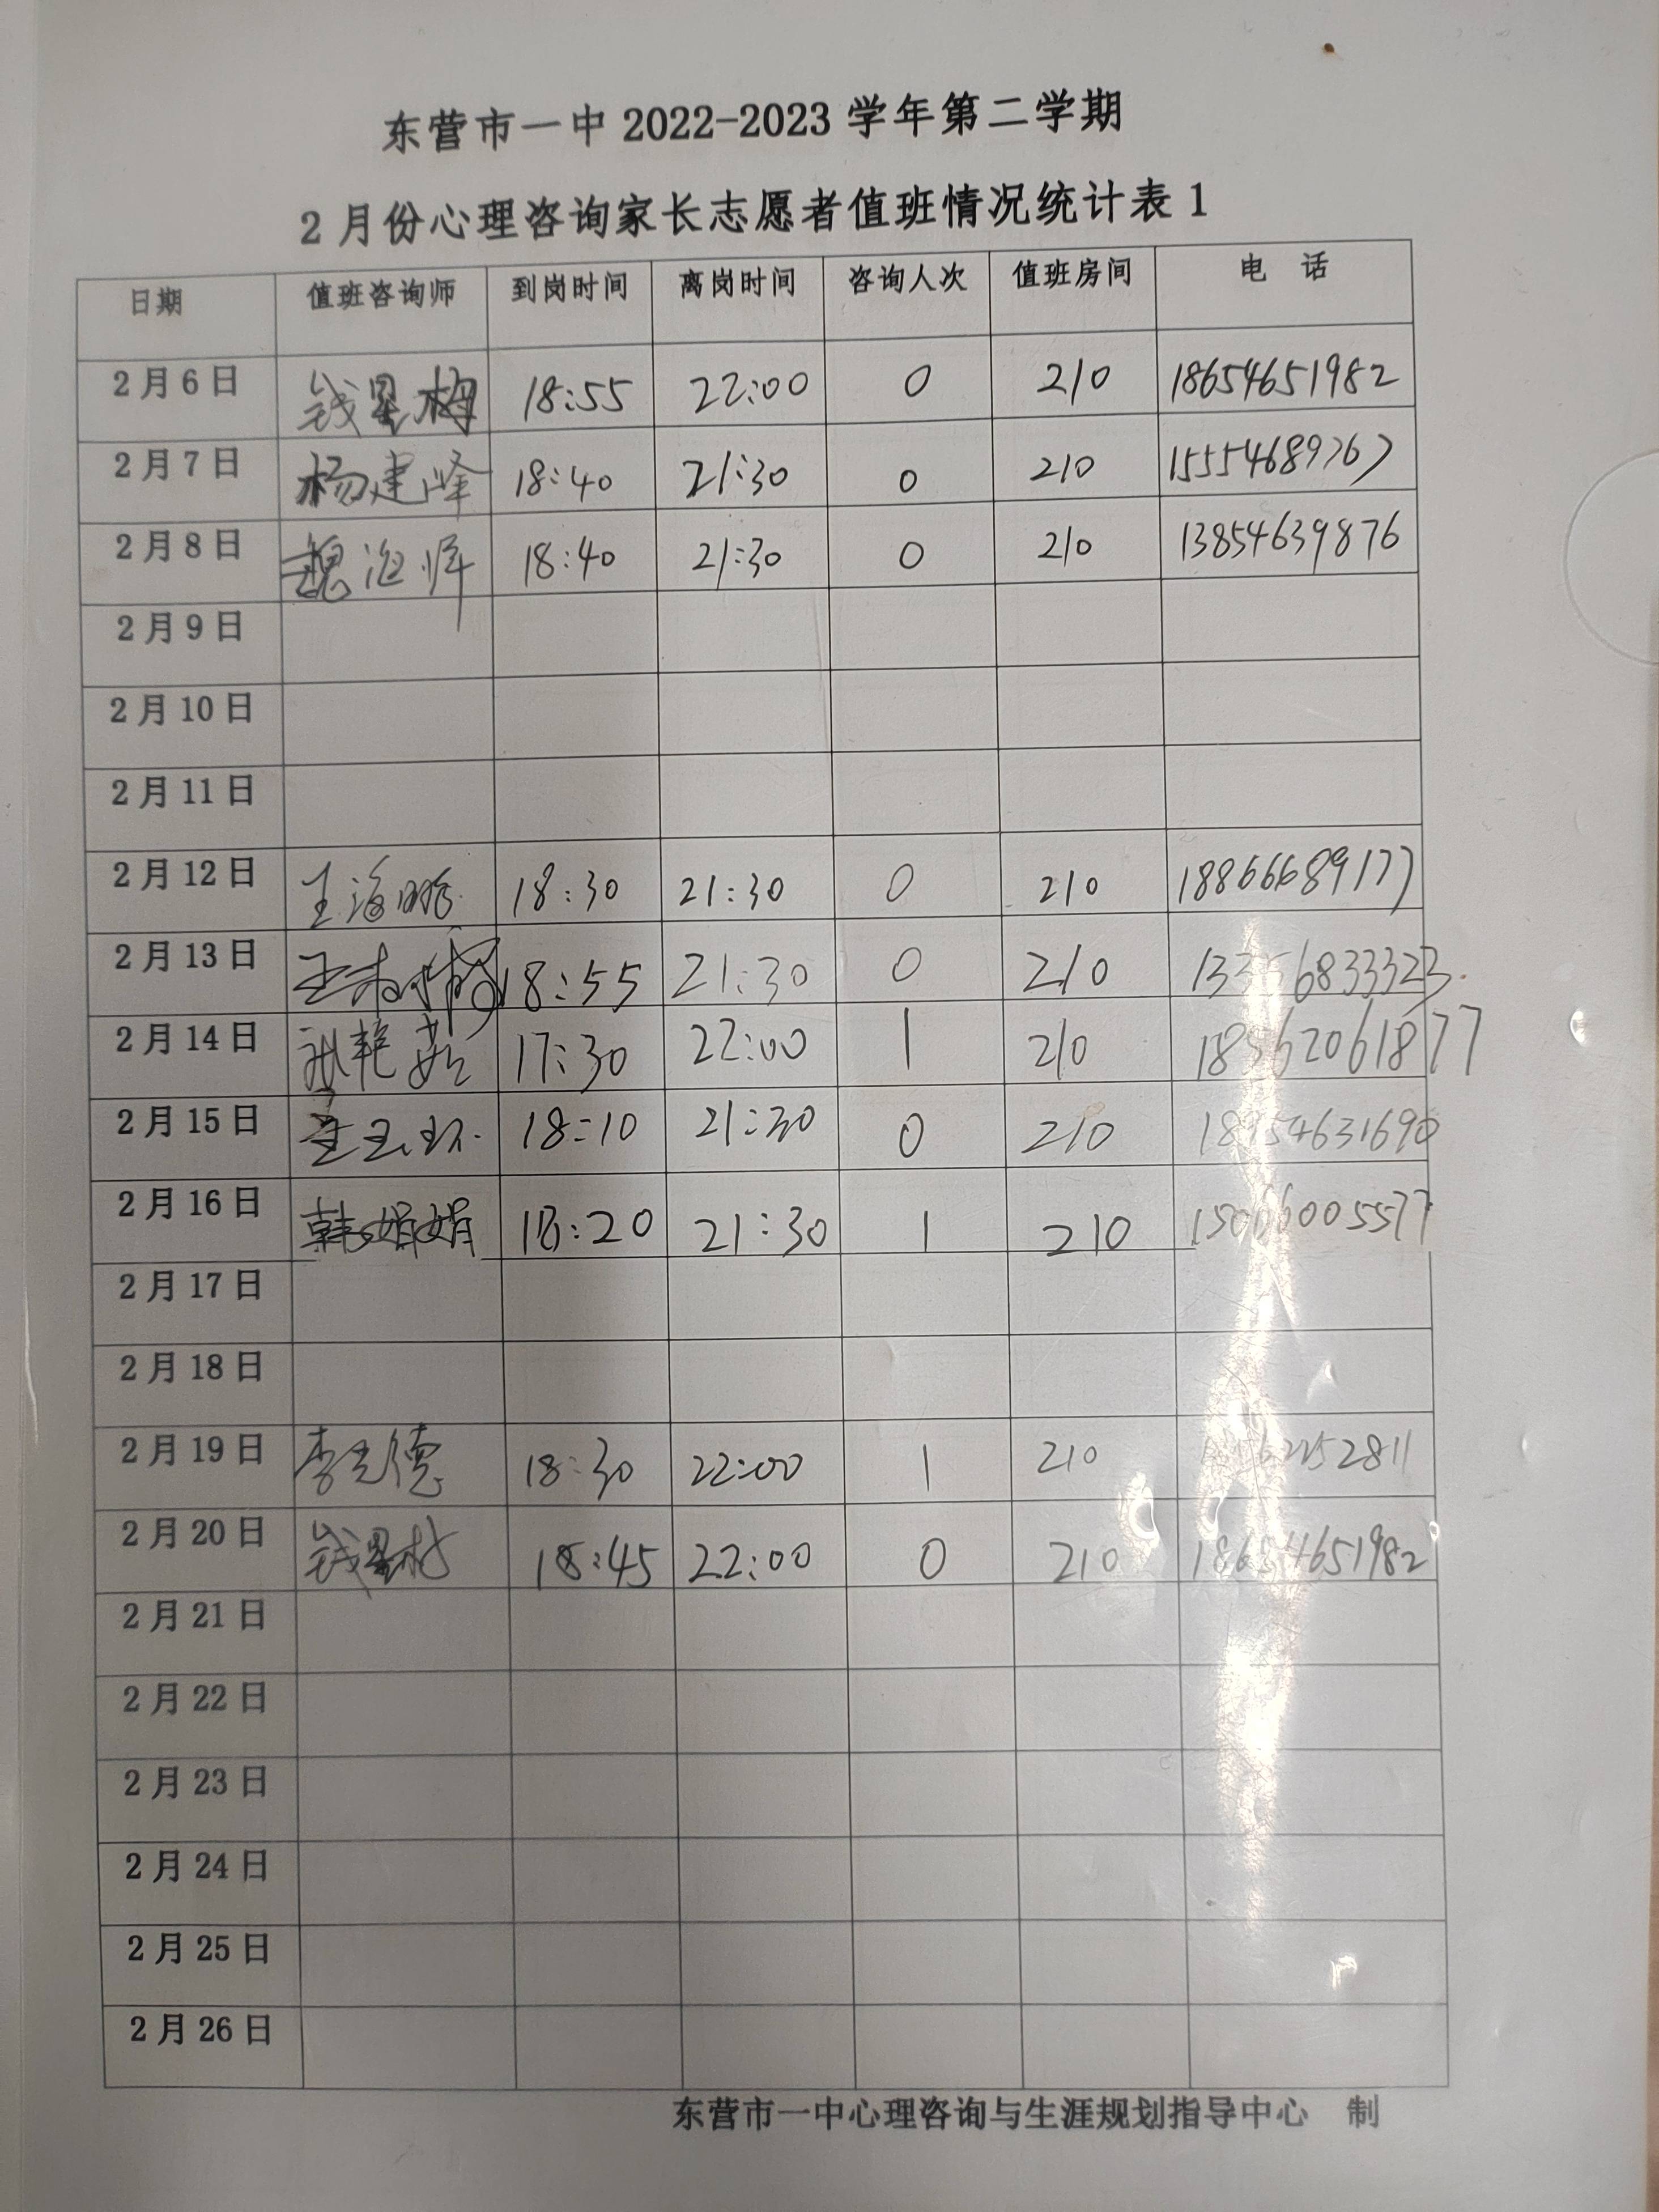 东营市一中 2022-2023 学年第二学期
2 月份心理咨询家长志愿者值班情况统计表 1
日期 值班咨询师 到岗时间 离岗时间 咨询人次 值班房间 电 话
2 月 6 日 钱星梅 18:55 22:00 0 210 18654651982
2 月 7 日 杨建峰 18:40 21:30 0 210 15554689767
2 月 8 日 魏海 18:40 21:30 0 210 13854639876
2 月 9 日
2 月 10 日
2 月 11 日
2 月 12 日 王海鹏 18:30 21:30 0 210 18866689177
2 月 13 日 18:55 21:30 0 210
2 月 14 日 艳茹 17:30 22:00 1 210
2 月 15 日 18:10 21:30 0 210
2 月 16 日 韩娟娟 18:20 21:30 1 210
2 月 17 日
2 月 18 日
2 月 19 日 18:30 22:00 1 210
2 月 20 日 18:45 22:00 0 210 18654651982
2 月 21 日
2 月 22 日
2 月 23 日
2 月 24 日
2 月 25 日
2 月 26 日
东营市一中心理咨询与生涯规划指导中心 制